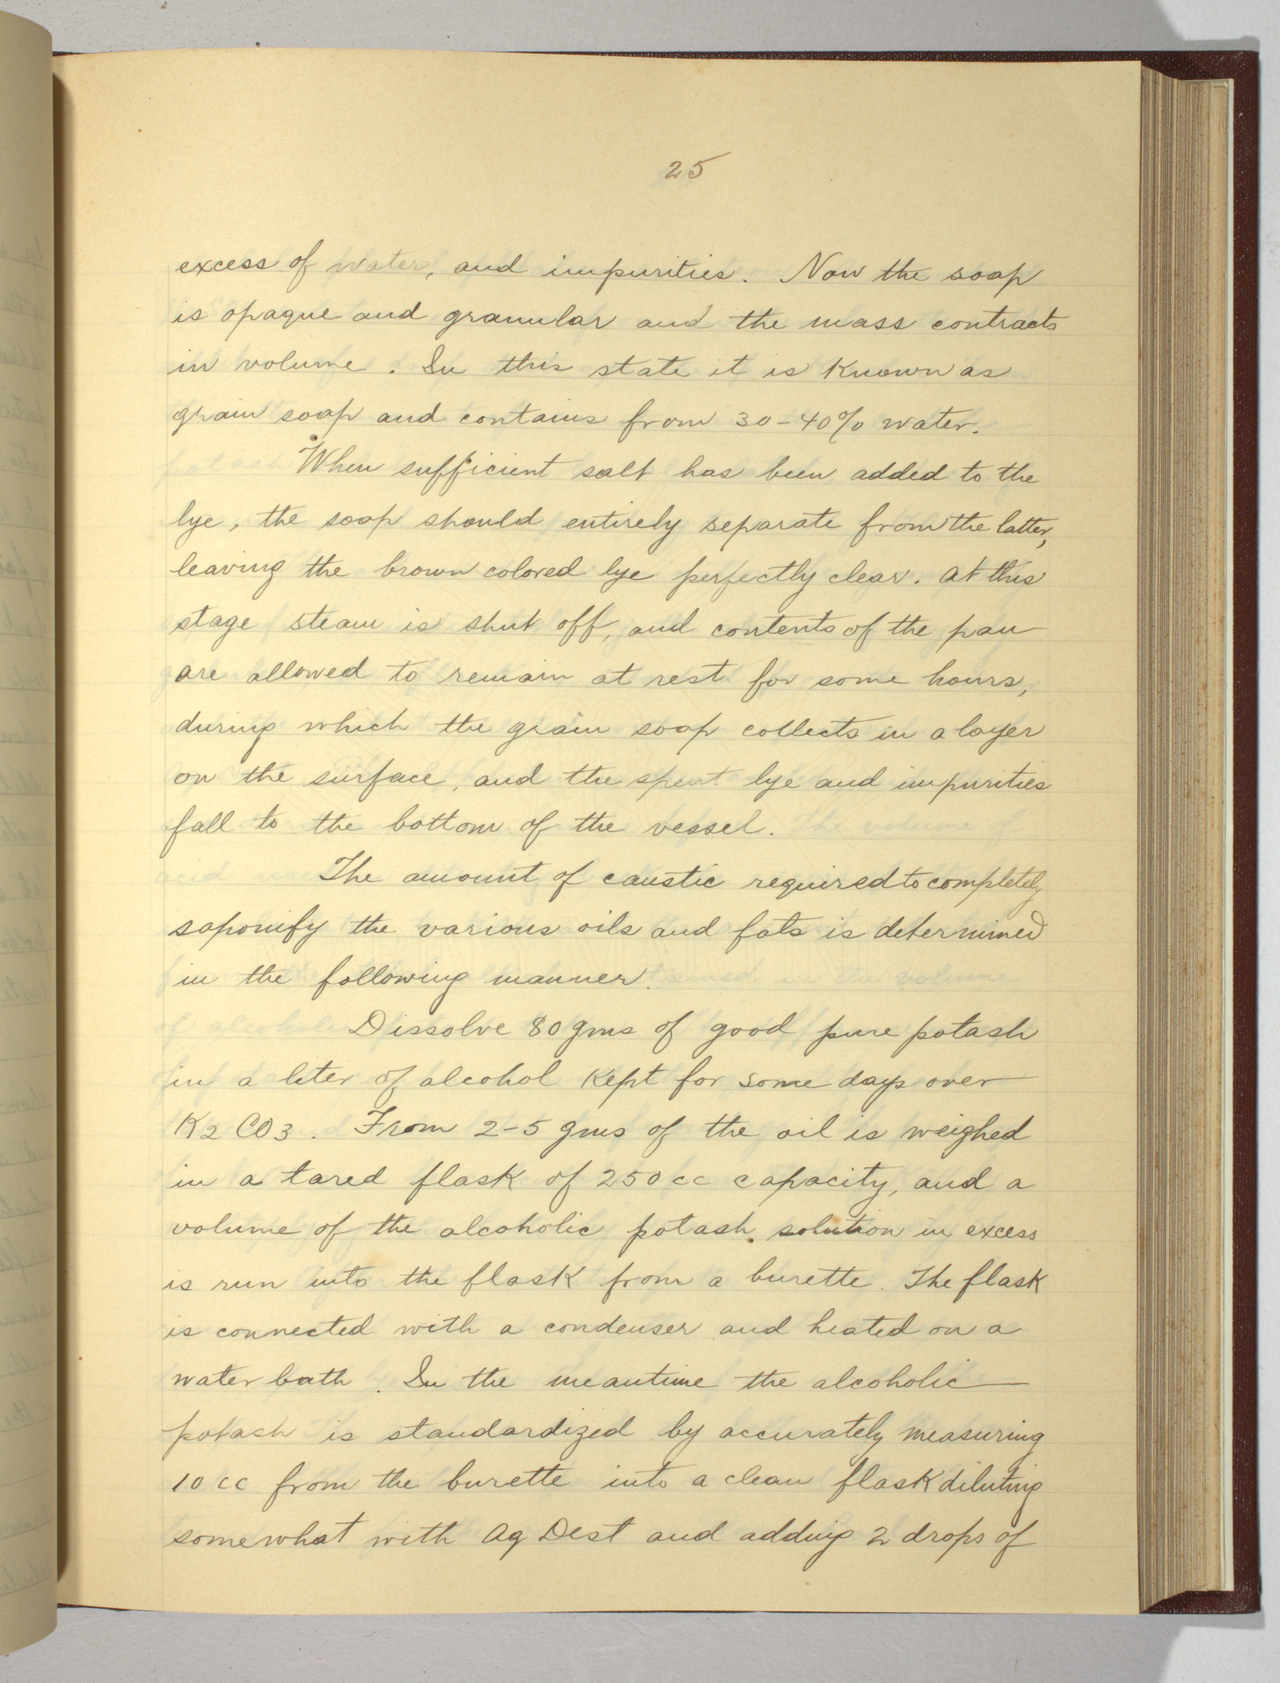 25
excess of water, and impurities. Now the soap
is opaque and granular and the mass contracts
in volume. In this state it is Known as
grain soap and contains from 30-40% water.
When sufficient salt has been added to the
lye, the soap should entirely separate from the latter,
leaving the brown colored lye perfectly clear. At this
stage steam is shut off, and contents of the pan
are allowed to remain at rest for some hours,
during which the grain soap collects in a layer
on the surface, and the spent lye and impurities
fall to the bottom of the vessel.
The amount of caustic required to completely
saponify the various oils and fats is determined
in the following manner.
Dissolve 80 gms of good pure potash
in a liter of alcohol Kept for some days over
K2 CO3. From 2-5 gms of the oil is weighed
in a tared flask of 250 cc capacity, and a
volume of the alcoholic potash. solution in excess
is run into the flask from a burette. The flask
is connected with a condenser and heated on a
water bath. In the meantime the alcoholic
potash is standardized by accurately measuring
10 cc from the burette into a clean flask diluting
somewhat with Aq Dest and adding 2 drops of